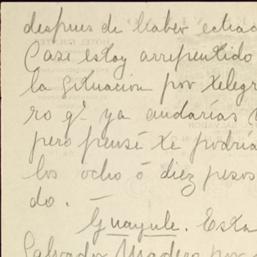 despues de haber echado
Casi estoy arrepentido
la situacion por telegr
ro q' ya andarías
pero pensé te podría
los ocho ó diez pesos
do. —
Guayule. Esta
Salvador Madero por